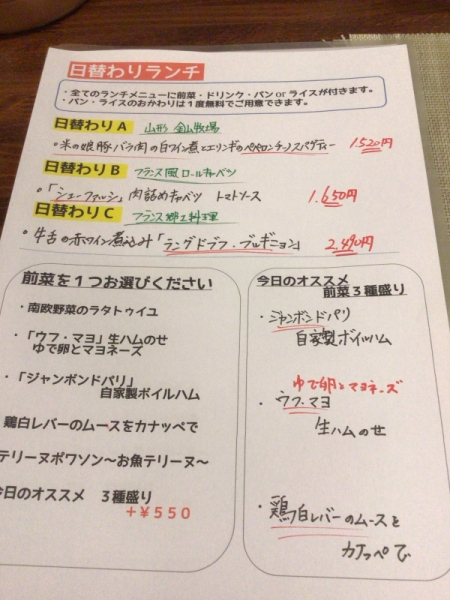 日替わりランチ
・全てのランチメニューに前菜・ドリンク・パンorライスが付きます。
・パン・ライスのおかわりは1度無料でご用意できます。
日替わりA 山形 金山牧場
・米の娘豚バラ肉の白ワイン煮とエリンギのペペロンチーノスパゲティー 1.520円
日替わりB フランス風ロールキャベツ
・「シューファルシ」肉詰めキャベツ トマトソース 1.650円
日替わりC フランス郷土料理
・牛舌の赤ワイン煮込み「ラングドブフ・ブルギニョン」 2.490円
前菜を1つお選びください
・南欧野菜のラタトゥイユ
・「ウフ・マヨ」生ハムのせ
ゆで卵とマヨネーズ
・「ジャンボンドパリ」
自家製ボイルハム
鶏白レバーのムースをカナッペで
テリーヌポワソン〜お魚テリーヌ〜
今日のオススメ 3種盛り
+¥550
今日のオススメ
前菜3種盛り
・ジャンボンドパリ
自家製ボイルハム
ゆで卵とマヨネーズ
・ウフ・マヨ
生ハムのせ
・鶏白レバーのムースを
カナッペで